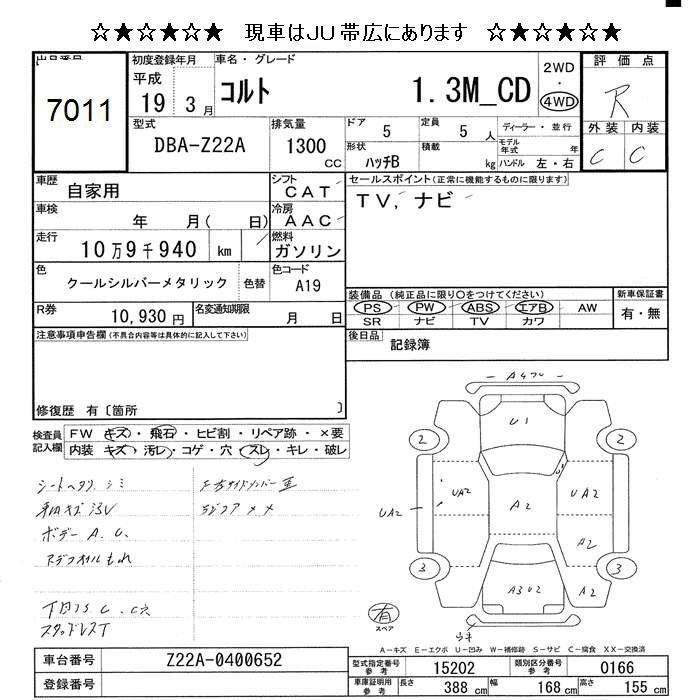 ☆★☆★☆★ 現車はJU帯広にあります ☆★☆★☆★
出品番号
7011
初度登録年月
平成
19 3月
車名・グレード
コルト 1.3M_CD
2WD
・
4WD
評価点
R
外装 内装
C C
型式
DBA-Z22A
排気量
1300
cc
ドア 5
定員 5人
ディーラー・並行
形状 ハッチB
積載 kg
モデル年式 年
ハンドル 左・右
車歴 自家用
シフト CAT
車検 年 月( 日)
冷房 AAC
走行 10万9千940 km
燃料 ガソリン
色 クールシルバーメタリック 色替
色コード A19
R券 10,930円
名変通知期限 月 日
セールスポイント(正常に機能するものに限ります)
TV, ナビ
装備品 (純正品に限り○をつけてください)
PS PW ABS エアB AW
SR ナビ TV カワ
新車保証書
有・無
後日品 記録簿
注意事項申告欄(不具合内容等は具体的に記入して下さい)
修復歴 有〔箇所 〕
検査員記入欄
FW キズ・飛石・ヒビ割・リペア跡・×要
内装 キズ・汚レ・コゲ・穴・スレ・キレ・破レ
シートヘタリ、シミ
ボデー A.U.
スタッドレスT
U1
2 2
UA2 UA2 A2 UA2
A2
3 3
A2
有
スペア
A-キズ E-エクボ U-凹み W-補修跡 S-サビ C-腐食 XX-交換済
車台番号 Z22A-0400652
登録番号
型式指定番号参考 15202
類別区分番号参考 0166
車庫証明用参考 長さ 388cm 幅 168cm 高さ 155cm